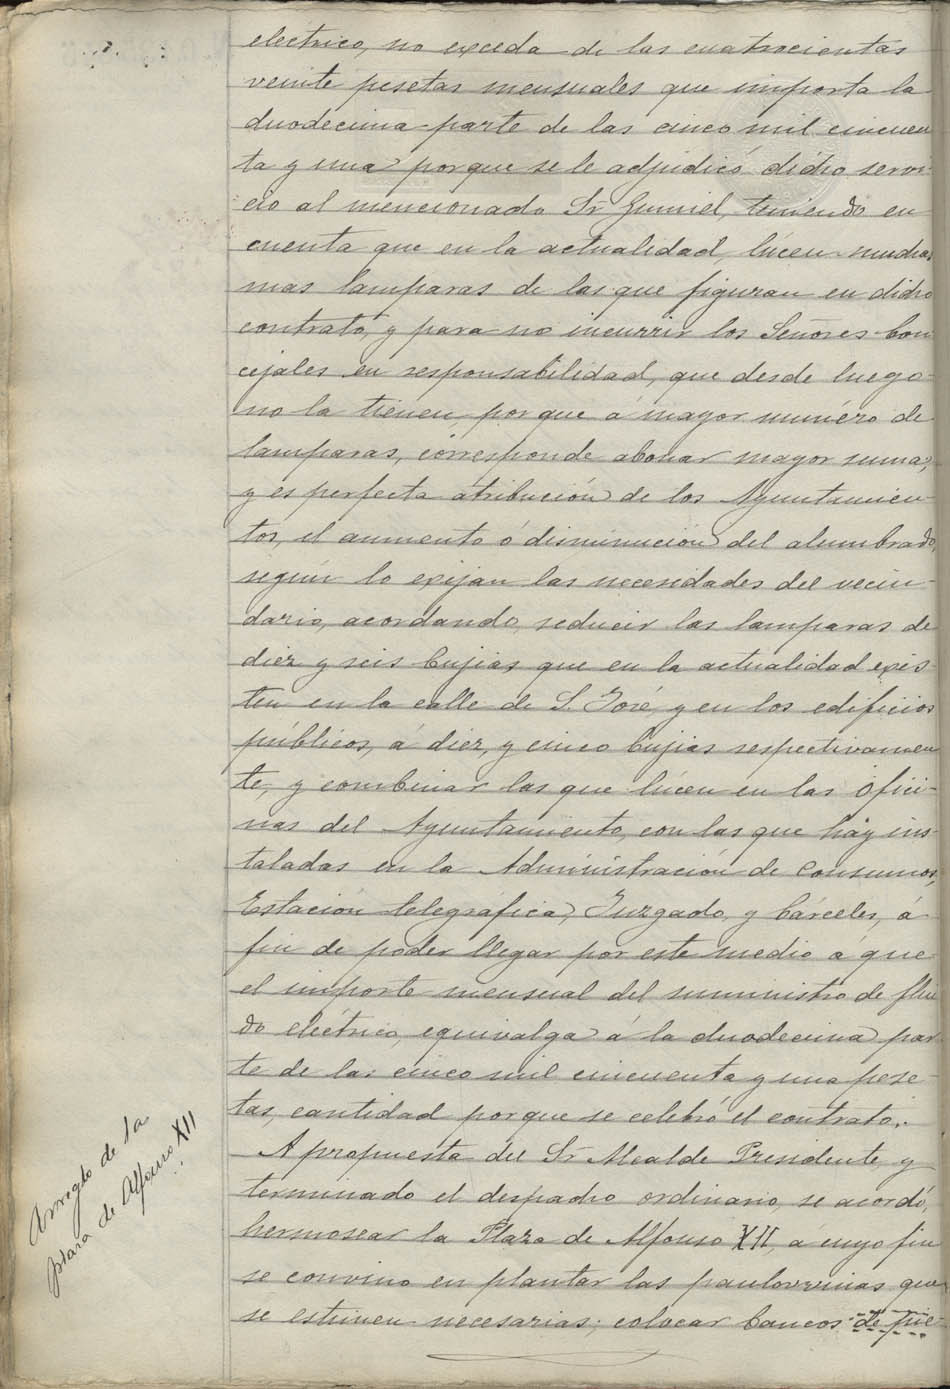 eléctrico, no exceda de las cuatrocientas
veinte pesetas mensuales que importa la
duodecima parte de las cinco mil cincuen
ta y una porque se le adjudicó dicho servi-
cio al mencionado Sr Gumiel, teniendo en
cuenta que en la actualidad, lúcen muchas
mas lamparas de las que figuran en dicho
contrato, y para no incurrir los Señores Con
cejales en responsabilidad, que desde luego
no la tienen, porque á mayor numéro de
lamparas, corresponde abonar mayor suma,
y es perfecta atribución de los Ayuntamien-
tos, el aumento ó disminución del alumbrado,
según lo exijan las necesidades del vecin-
dario, acordando, reducir las lamparas de
diez y seis bujias, que en la actualidad exis-
ten en la calle de S. José, y en los edificios
públicos, á diez, y cinco bujias respectivamen
te, y combinar las que lúcen en las ofici-
nas del Ayuntamiento, con las que hay ins-
taladas en la Administración de Consumos,
Estación telegráfica, Juzgado, y Cárceles, á
fin de poder llegar por este medio á que
el importe mensual del suministro de flui
do eléctrico, equivalga á la duodecima par
te de las cinco mil cincuenta y una pese-
tas, cantidad porque se celebró el contrato.
Arreglo de la
plaza de Alfonso XII
A propuesta del Sr Alcalde Presidente, y
terminado el despacho ordinario, se acordó,
hermosear la Plaza de Alfonso XII, á cuyo fin
se convino en plantar las paulovnias que
se estimen necesarias; colocar bancos de pie-